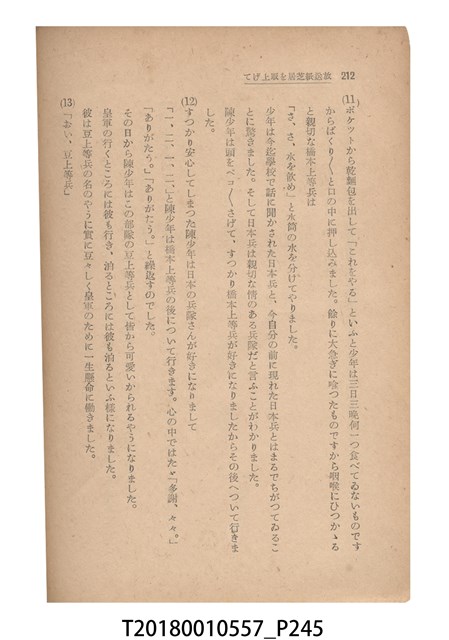 放送紙芝居を取上げて
212
(11) ポケットから乾麵包を出して「これをやる」といふと少年は三日三晩何一つ食べてゐないものです
からぱくり〱と口の中に押し込みました。餘りに大急ぎに喰つたものですから咽喉にひつかゝる
と親切な橋本上等兵は
「さ、さ、水を飲め」と水筒の水を分けてやりました。
少年は今迄學校で話に聞かされた日本兵と、今自分の前に現れた日本兵とはまるでちがつてゐるこ
とに驚きました。そして日本兵は親切な情のある兵隊だと言ふことがわかりました。
陳少年は頭をペコ〱さげて、すつかり橋本上等兵が好きになりましたからその後へついて行きま
した。
(12) すつかり安心してしまつた陳少年は日本の兵隊さんが好きになりまして
「一、二、一、二、」と陳少年は橋本上等兵の後について行きます。心の中ではたゞ「多謝、々々。」
「ありがたう。」「ありがたう。」と繰返すのでした。
その日から陳少年はこの部隊の豆上等兵として皆から可愛いがられるやうになりました。
皇軍の行くところには彼も行き、泊るところには彼も泊るといふ樣になりました。
彼は豆上等兵の名のやうに實に豆々しく皇軍のために一生懸命に働きました。
(13) 「おい、豆上等兵」
T20180010557_P245